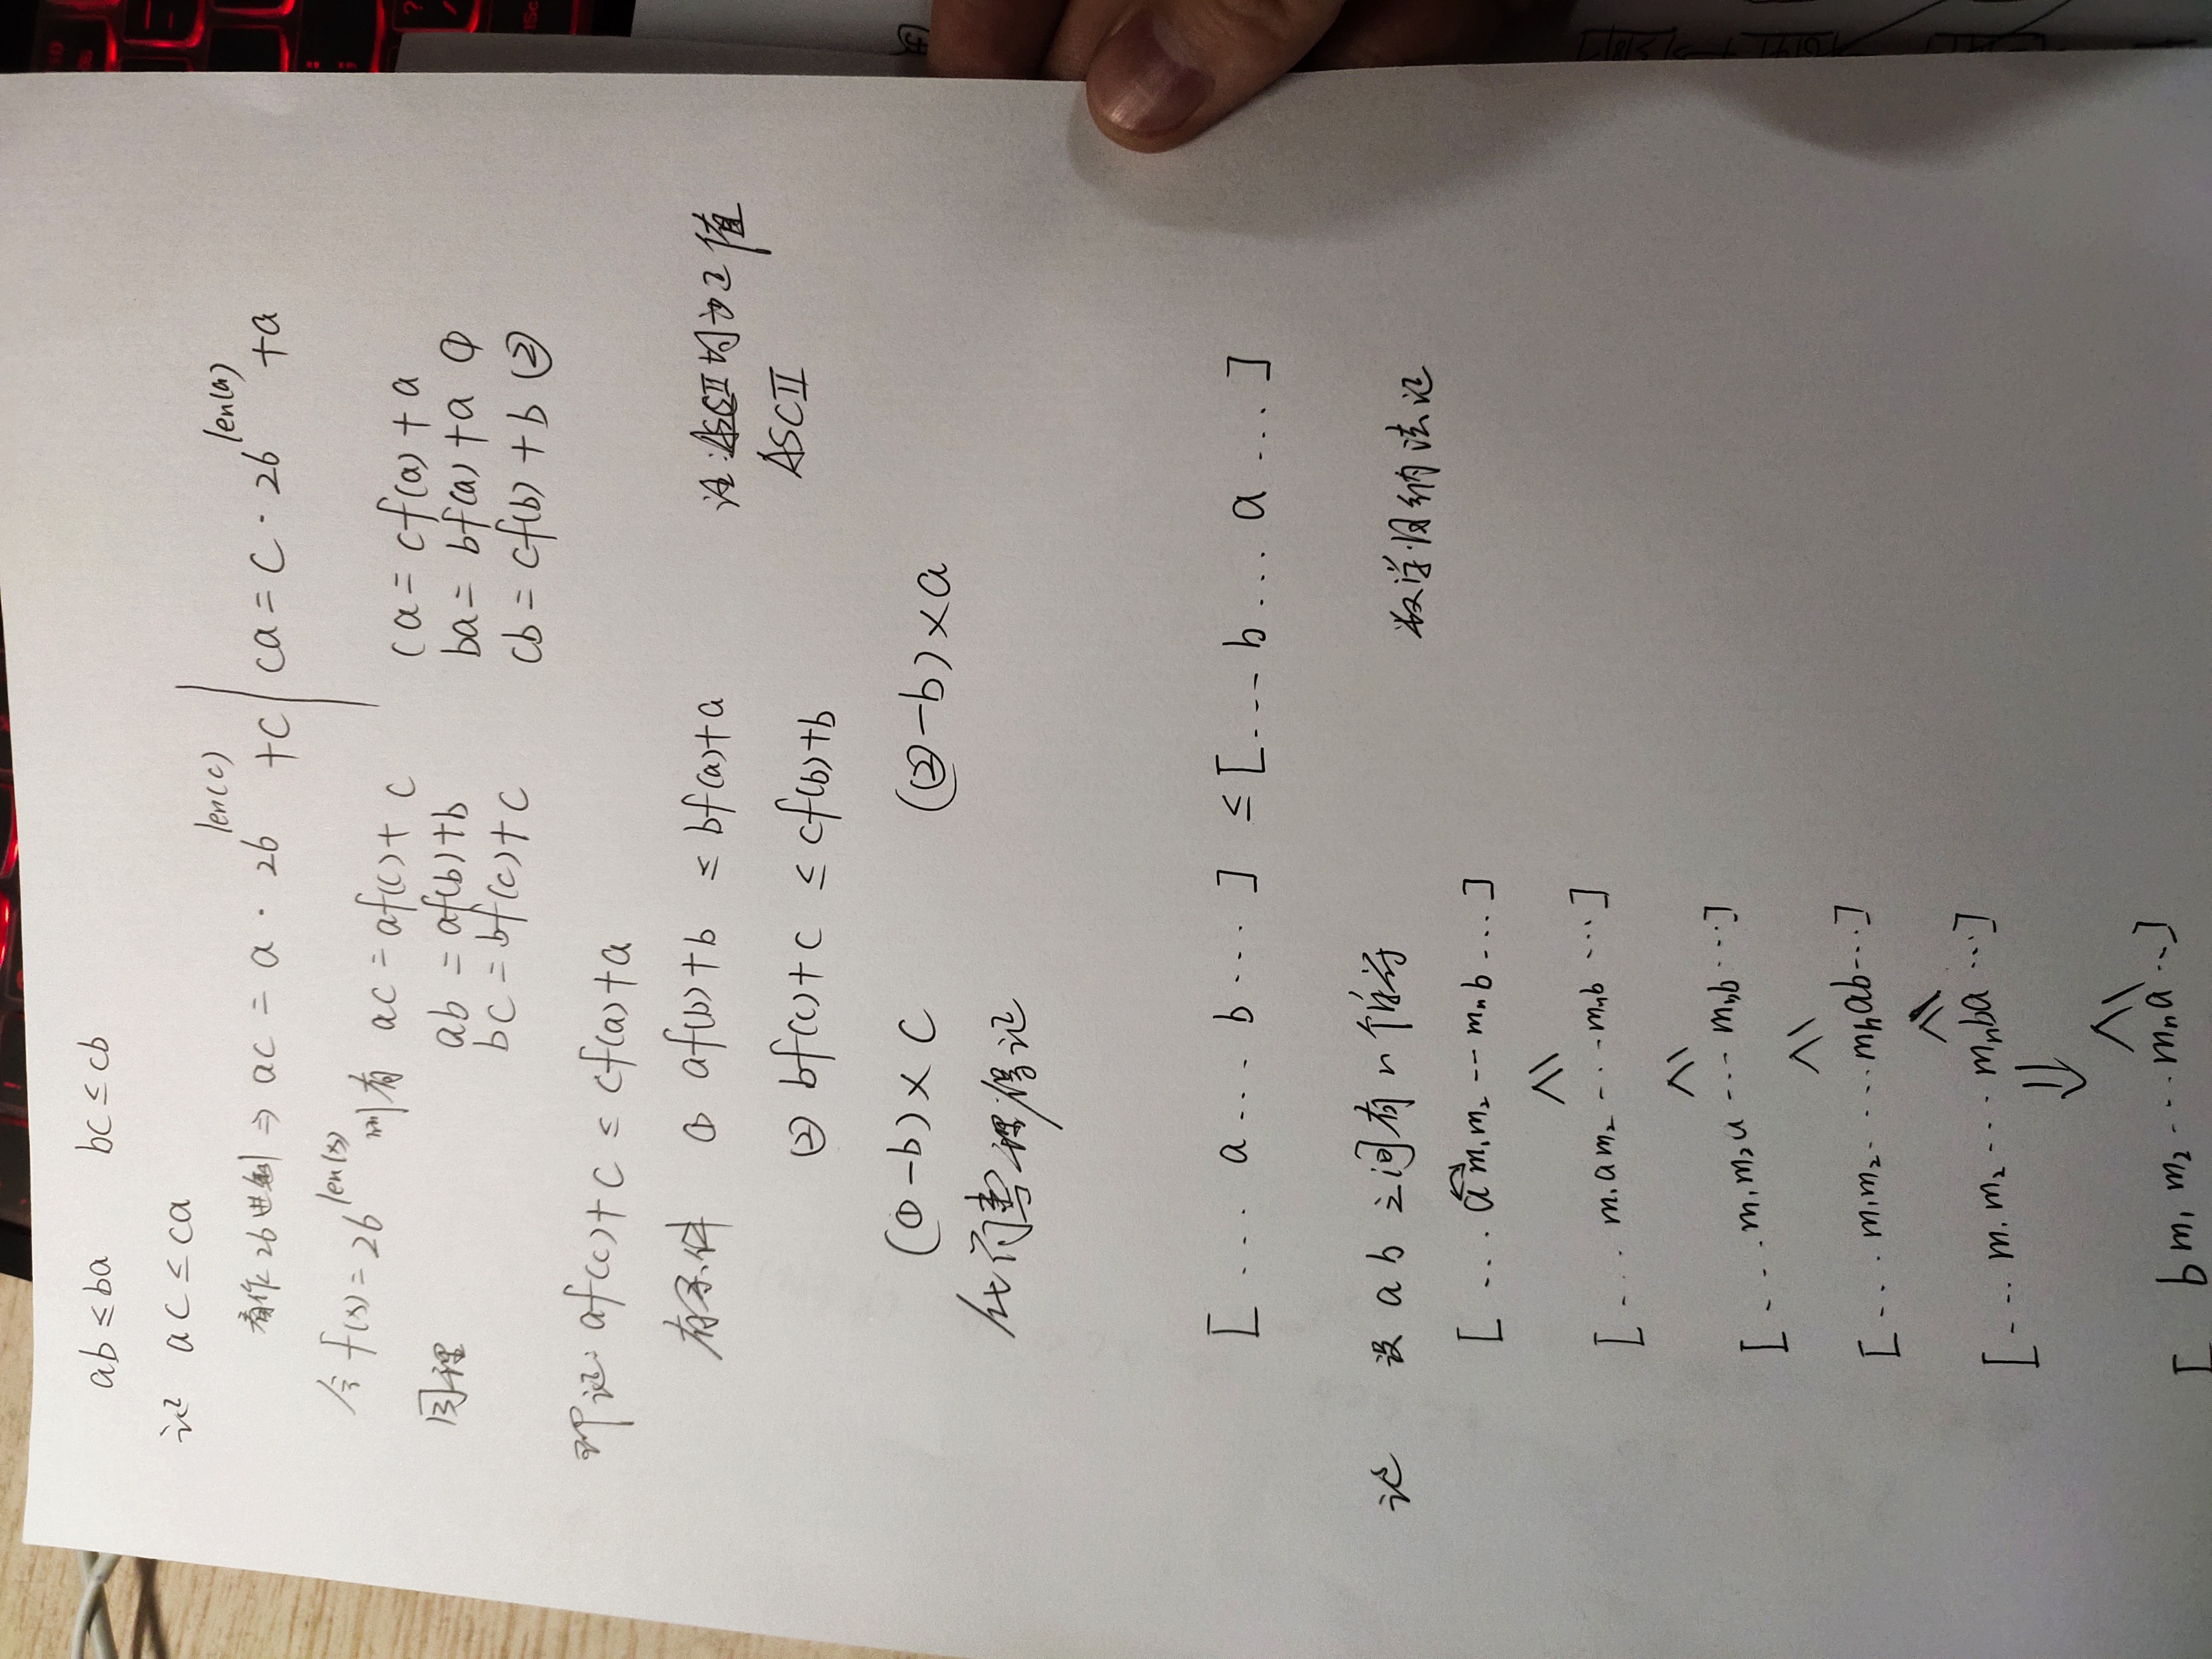 ab ≤ ba bc ≤ cb
证 ac ≤ ca
看作 26 进制 ⇒ ac = a · 26^len(c) + c | ca = c · 26^len(a) + a
令 f(x) = 26^len(x) 则有 ac = af(c) + c ca = cf(a) + a
同理 ab = af(b) + b ba = bf(a) + a ①
bc = bf(c) + c cb = cf(b) + b ②
即证: af(c) + c ≤ cf(a) + a
有条件 ① af(b) + b ≤ bf(a) + a 注: 均为正值
ASCII
② bf(c) + c ≤ cf(b) + b
(① - b) × c (② - b) × a
化简整理得证
[ ... a ... b ... ] ≤ [ ... b ... a ... ]
证 设 a b 之间有 n 个字符 数学归纳法证
[ ... a m₁ m₂ ... mₙ b ... ]
≤
[ ... m₁ a m₂ ... mₙ b ... ]
≤
[ ... m₁ m₂ a ... mₙ b ... ]
≤
[ ... m₁ m₂ ... mₙ a b ... ]
≤
[ ... m₁ m₂ ... mₙ b a ... ]
⇓
≤
[ b m₁ m₂ ... mₙ a ... ]